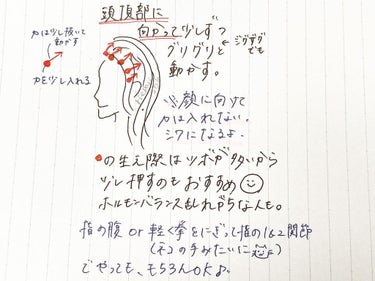 頭頂部に
向かって少しずつ
グリグリと
ジグザグでも
動かす。
力は少し抜いて
動かす
力を少し入れる
※顔に向けて
力は入れない。
シワになるよ。
の生え際はツボが多いから
少し押すのもおすすめ
ホルモンバランスもしれがちな人も。
指の腹 or 軽く拳をにぎって指の1&2関節
(ネコの手みたいに)
でやっても、もちろんOKよ。